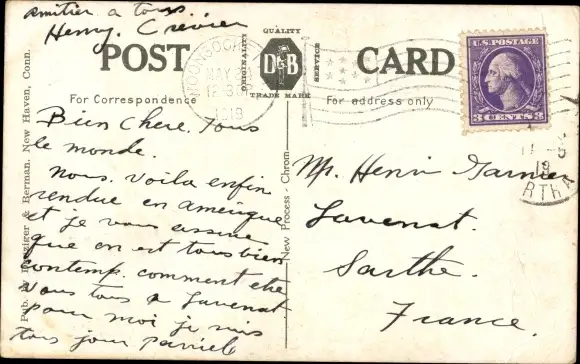 amitier a tous
Henry. Crévier
POST CARD
QUALITY
ORIGINALITY
SERVICE
D & B
TRADE MARK
For Correspondence
For address only
MAY
12 30
1919
U.S. POSTAGE
3 CENTS 3
Bien chere. tous
le monde.
Nous. voila enfin
rendue en amérique
et je vous assure
que on est tous bien
contemp. comment etes
vous tous a Savenat
pour moi je suis
tous jour pariele
Mr. Henri Garnier
Savenat.
Sarthe.
France.
19
RTHE
Pub. by Danziger & Berman. New Haven, Conn.
New Process - Chrom